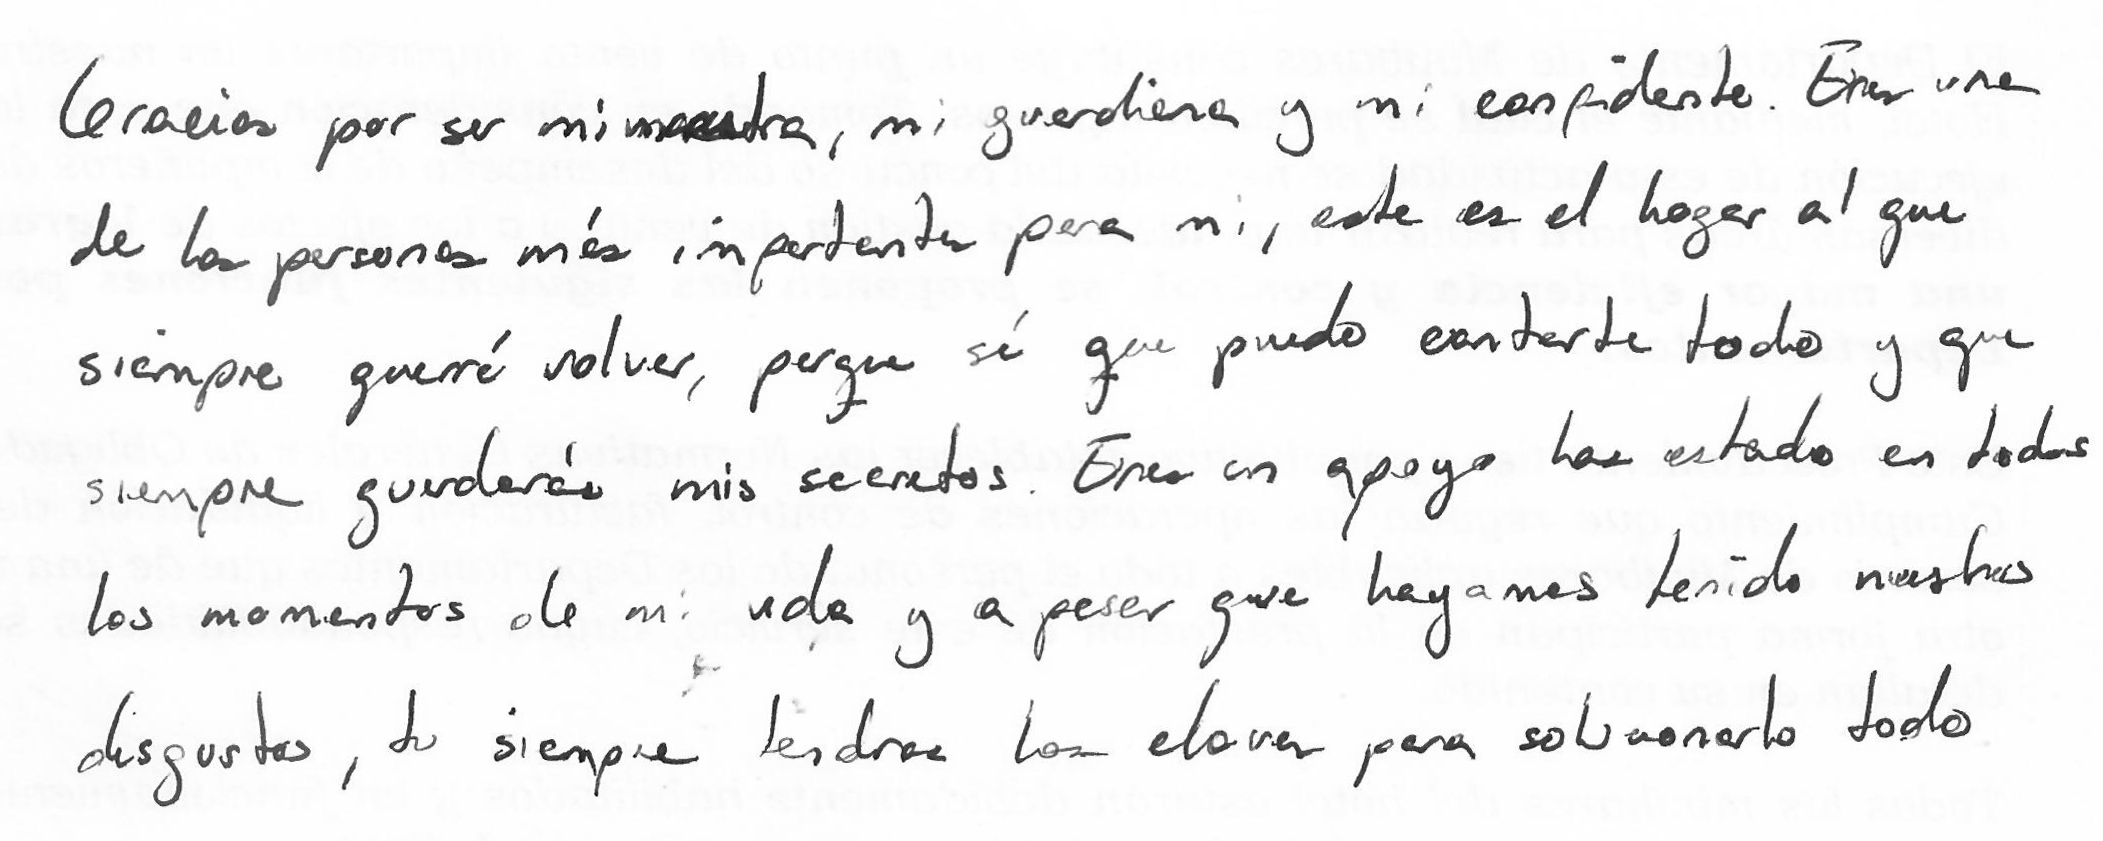 Gracias por ser mi maestra, mi guardiana y mi confidente. Eres una
de las personas más importantes para mi, este es el hogar al que
siempre querré volver, porque sé que puedo contarte todo y que
siempre guardarás mis secretos. Eres un apoyo has estado en todos
los momentos de mi vida y a pesar que hayamos tenido nuestros
disgustos, tu siempre tendras las claves para solucionarlo todo